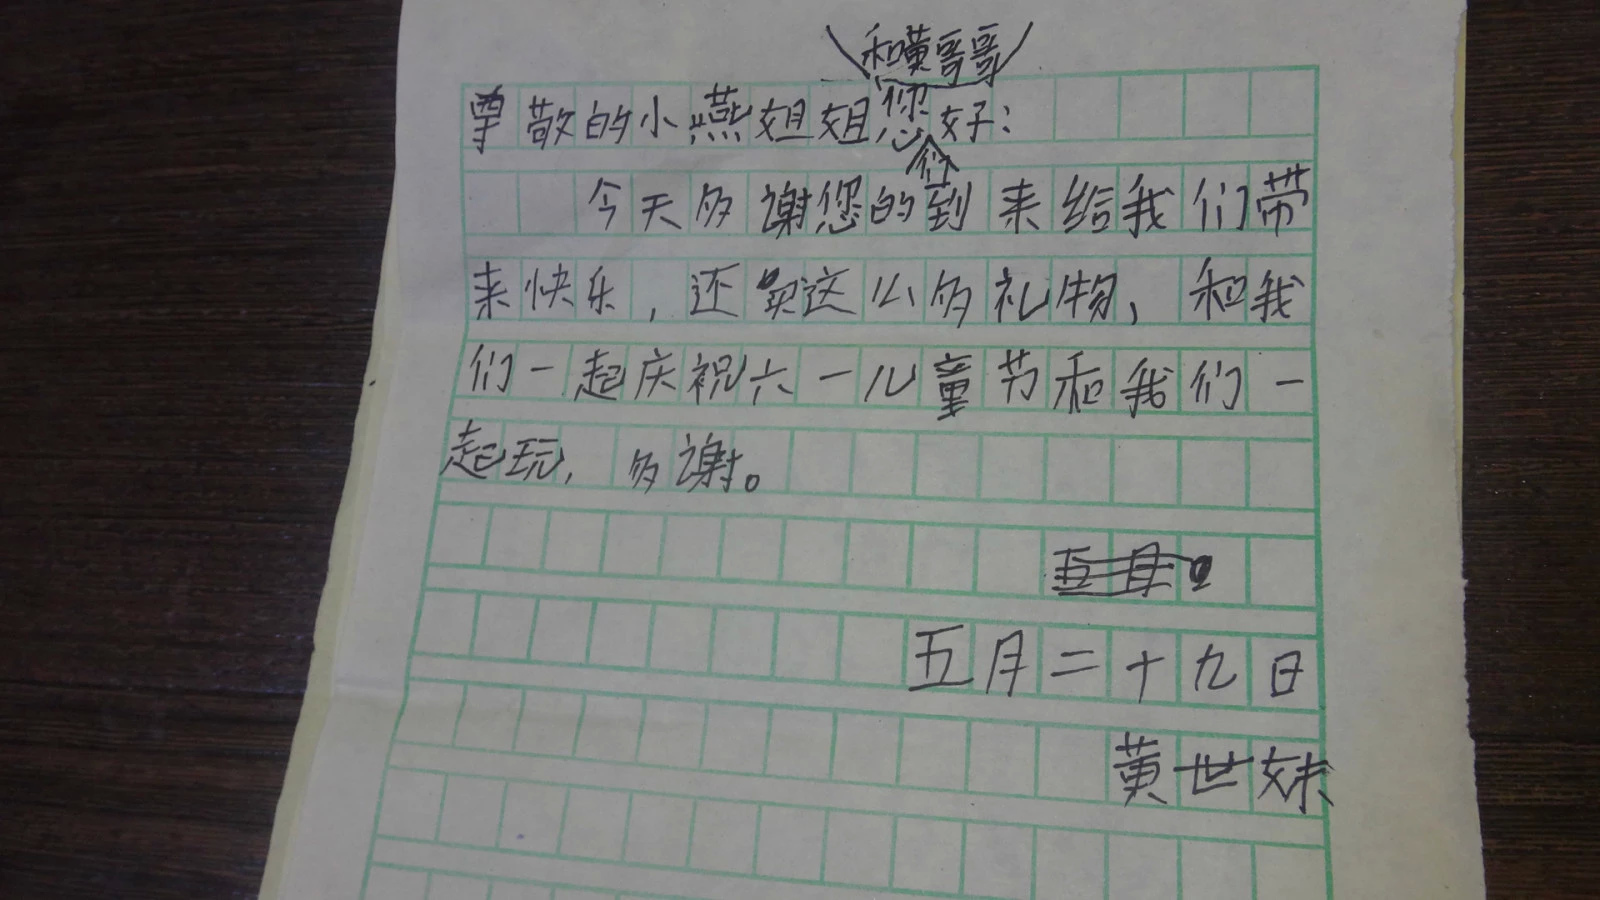 和黄哥哥
尊敬的小燕姐姐您好：
们
今天多谢您的到来给我们带
来快乐，还买这么多礼物，和我
们一起庆祝六一儿童节和我们一
起玩，多谢。
五月
五月二十九日
黄世妹